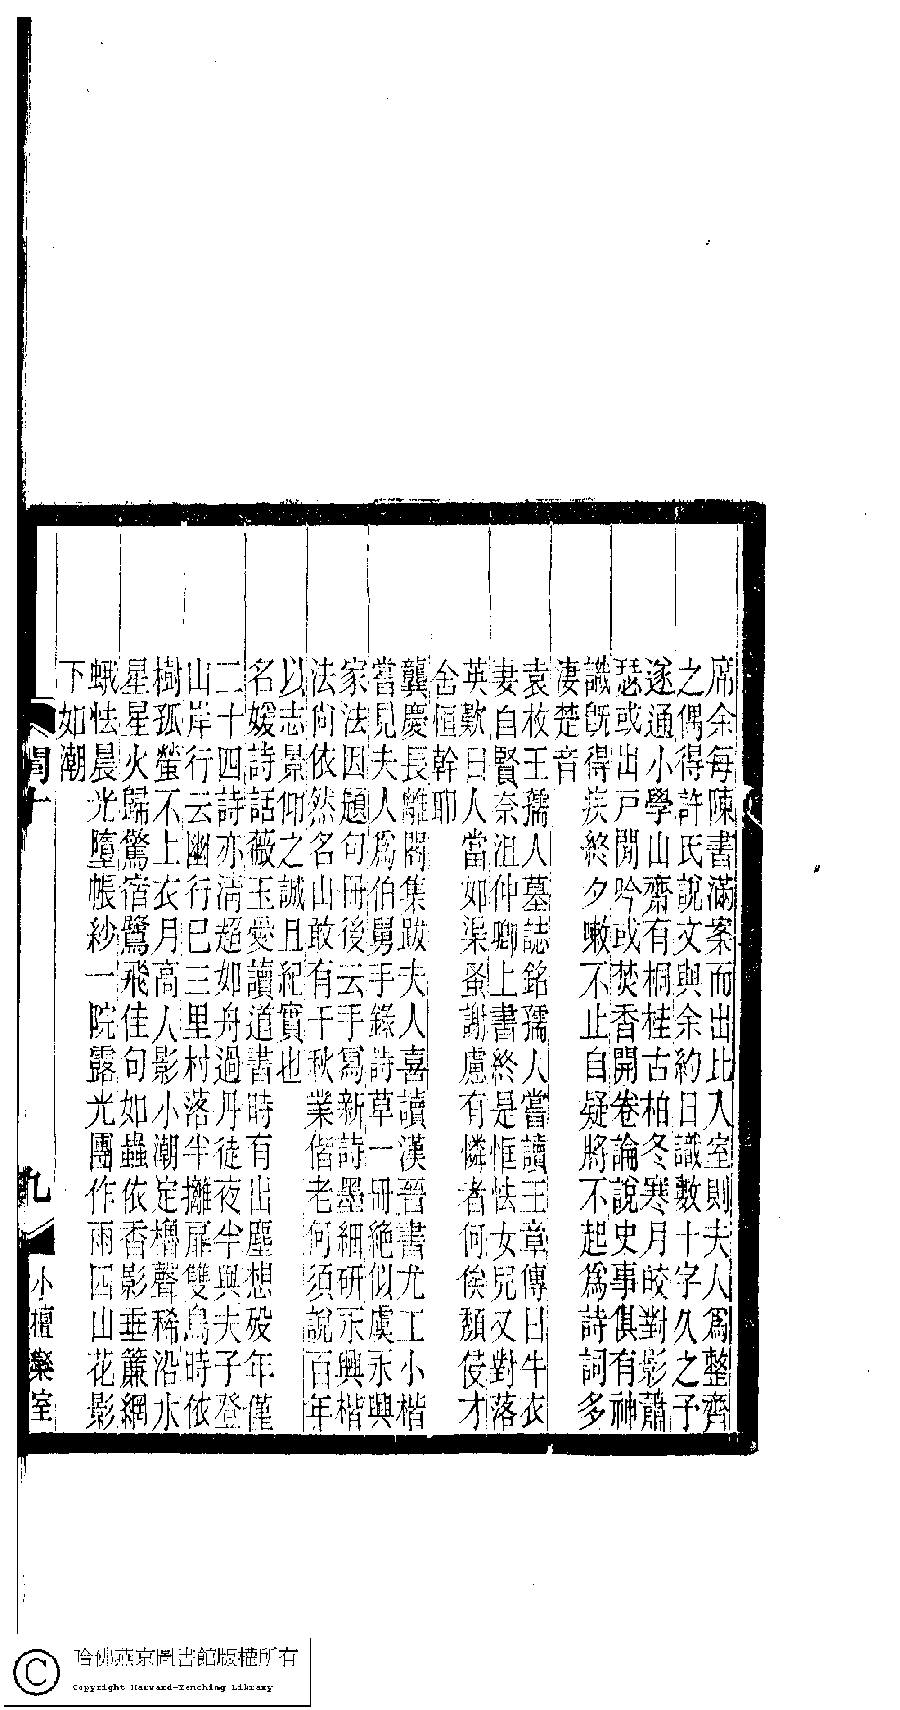 席余每陳書滿案而出比入室則夫人爲整齊
之偶得許氏說文與余約日識數十字久之予
遂通小學山齋有桐桂古柏冬寒月皎對影蕭
瑟或出戶閒吟或焚香開卷論說史事俱有神
識旣得疾終夕嗽不止自疑將不起爲詩詞多
淒楚音
袁枚王孺人墓誌銘孺人嘗讀王章傳曰牛衣
妻自賢奈沮仲卿上書終是恇怯女兒又對落
英歎曰人當如渠蚤謝慮有憐者何俟頽侵才
舍恒幹耶
龔慶長離閣集跋夫人喜讀漢晉書尤工小楷
嘗見夫人爲伯舅手錄詩草一冊絶似虞永興
家法因題句冊後云手寫新詩墨細研永興楷
法向依然名山敢有千秋業偕老何須說百年
以志景仰之誠且紀實也
名媛詩話薇玉愛讀道書時有出塵想歿年僅
二十四詩亦淸超如舟過丹徒夜半與夫子登
山岸行云幽行已三里村落半攤扉雙鳥時依
樹孤螢不上衣月高人影小潮定櫓聲稀沿水
星星火歸驚宿鷺飛佳句如蟲依香影垂簾網
蛾怯晨光墮帳紗一院露光團作雨四山花影
下如潮
閨十
九
小檀欒室
哈佛燕京圖書館版權所有
Copyright Harvard-Yenching Library